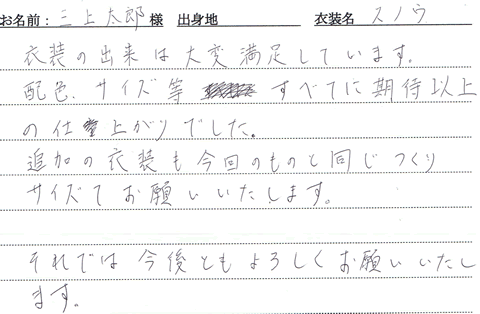 お名前：三上太郎 様 出身地 衣装名 スノウ
衣装の出来は大変満足しています。
配色、サイズ等 すべてに期待以上
の仕上がりでした。
追加の衣装も今回のものと同じつくり
サイズてお願いいたします。
それでは今後ともよろしくお願いいたし
ます。